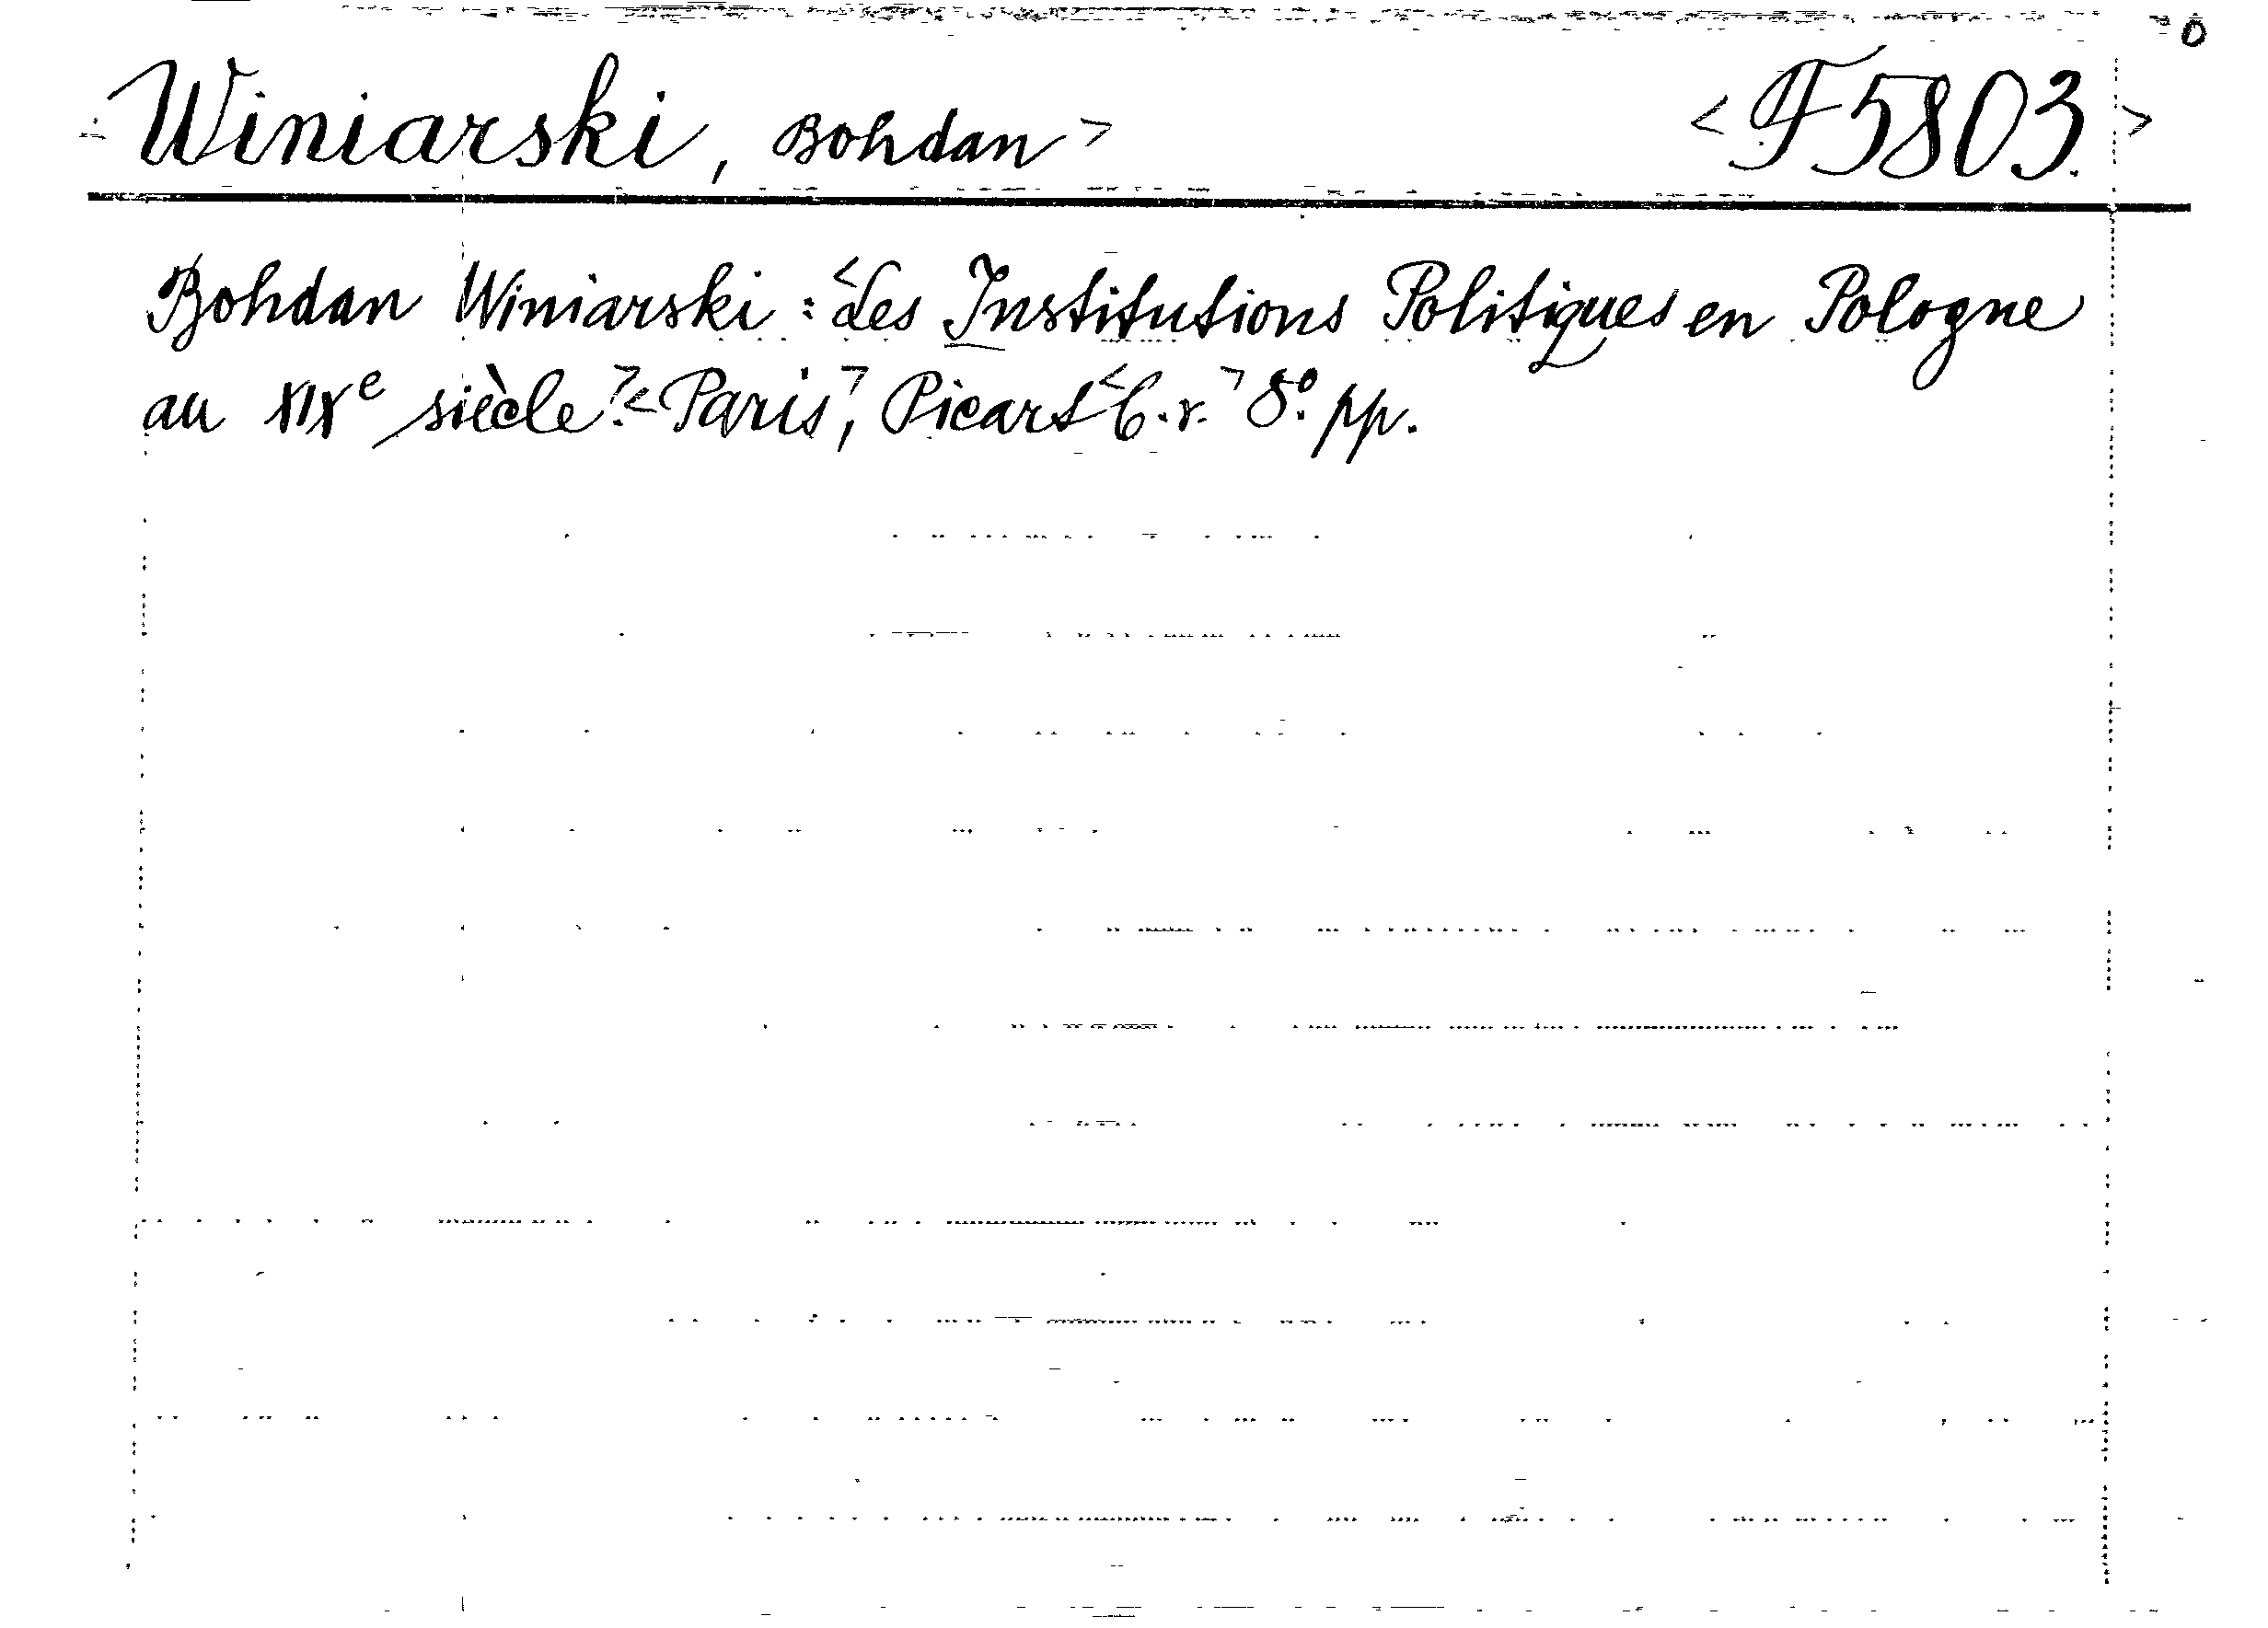 Winiarski, Bohdan> <F 5803.>
Bohdan Winiarski: <Les Institutions Politiques en Pologne
au XIXe siècle.> <Paris>, Picart <b.r.> 8o. pp.